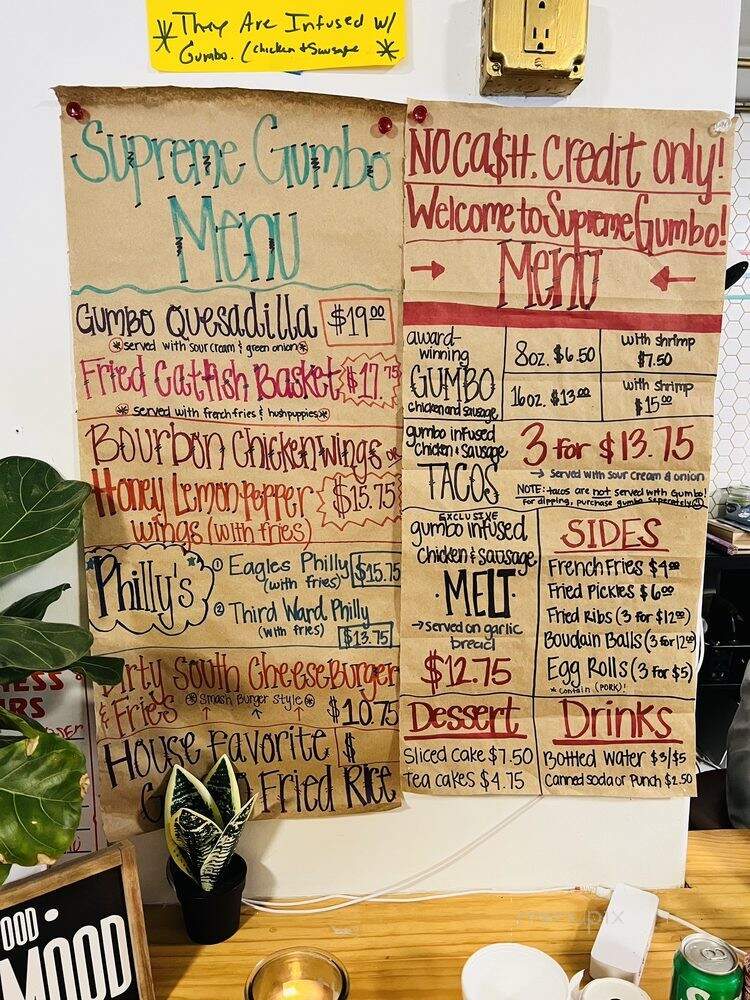 They Are Infused w/
Gumbo. (chicken + Sausage
Supreme Gumbo
Menu
Gumbo Quesadilla $19.00
served with sour cream & green onion
Fried Catfish Basket $17.75
served with french fries & hushpuppies
Bourbon Chicken wings or
Honey Lemon Pepper $15.75
wings (with fries)
Philly's
① Eagles Philly $15.75
(with fries)
② Third Ward Philly
(with fries) $13.75
Dirty South CheeseBurger
& Fries Smash Burger Style $10.75
House Favorite $
Fried Rice
NO CA$H. Credit only!
Welcome to Supreme Gumbo!
Menu
award-
winning
GUMBO
chicken and sausage
8oz. $6.50
with shrimp
$7.50
16oz. $13.00
with shrimp
$15.00
gumbo infused
chicken & sausage
TACOS
3 for $13.75
→ served with sour cream & onion
NOTE: tacos are not served with Gumbo!
For dipping, purchase gumbo seperately
EXCLUSIVE
gumbo infused
chicken & sausage
·MELT·
→ served on garlic
bread
$12.75
SIDES
French Fries $4.00
Fried Pickles $6.00
Fried Ribs (3 for $12.00)
Boudain Balls (3 for 12.00)
Egg Rolls (3 for $5)
* contain (PORK)!
Dessert
Sliced Cake $7.50
Tea cakes $4.75
Drinks
Bottled Water $3/$5
Canned soda or Punch $2.50
OOD
MOOD